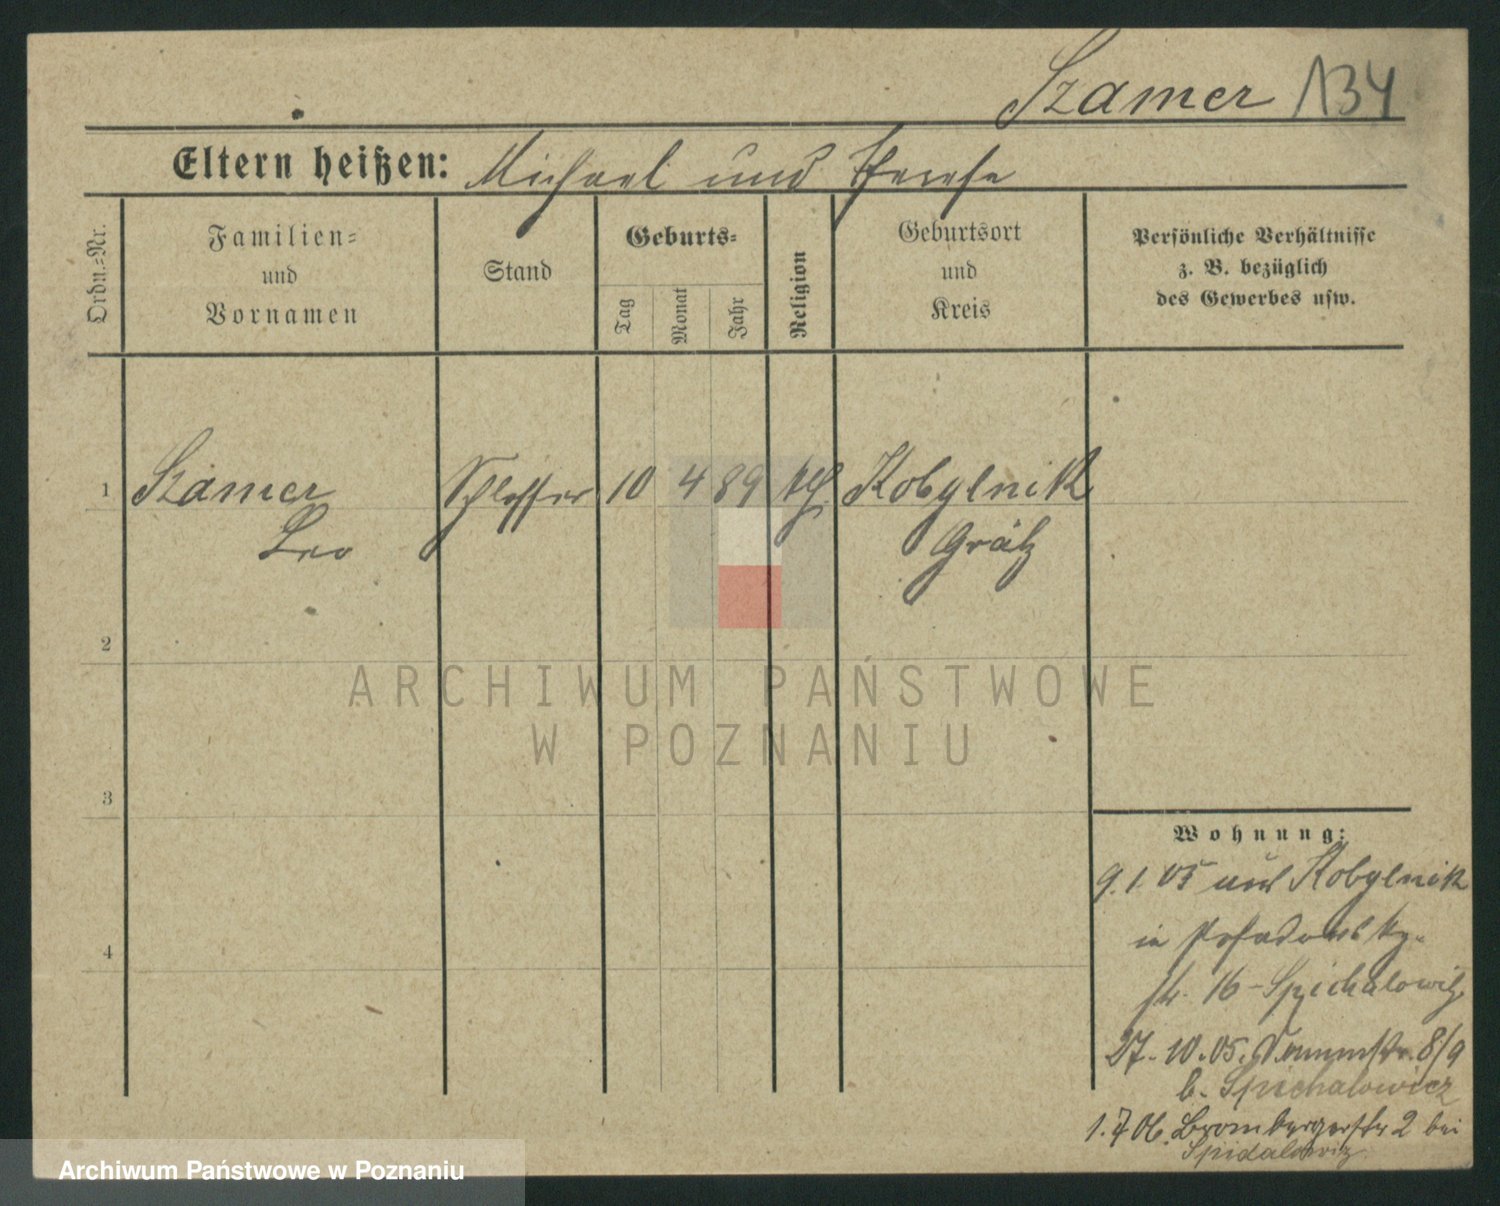 Szamer 134
Eltern heißen: Michael und Therese
Ordn.=Nr.
Familien=
und
Vornamen
Stand
Geburts=
Tag
Monat
Jahr
Religion
Geburtsort
und
Kreis
Persönliche Verhältnisse
z. B. bezüglich
des Gewerbes usw.
1 Szamer Schlosser 10 4 89 kth. Kobylnik
Leo Grätz
2
3
4
ARCHIWUM PAŃSTWOWE
W POZNANIU
Wohnung:
9.1.05 aus Kobylnik
in Posadowsky-
str. 16 - Spichalowitz
27.10.05. Dammstr. 8/9
b. Spichalowicz
1.7 06. Brombergerstr 2 bei
Spidalowitz
Archiwum Państwowe w Poznaniu